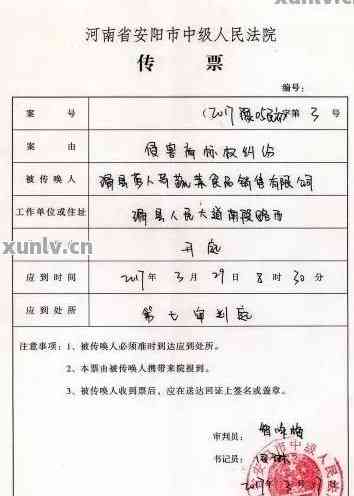 xunlv.cn
河南省安阳市中级人民法院
传 票
编号:
案 号 (2017)豫05 字第 3 号
案 由 侵害商标权纠纷
被传唤人 滑县 蔬菜食品销售有限公司
工作单位或住址 滑县人民大道南段路西
xunlv.cn
开庭
应到时间 2017年 3月 29日 8时 30分
应到处所 第七审判庭
注意事项:1、被传唤人必须准时到达应到处所。
2、本票由被传唤人携带来院报到。
3、被传唤人收到票后,应在送达回证上签名或盖章。
审判员:
书记员:
2017年 3月